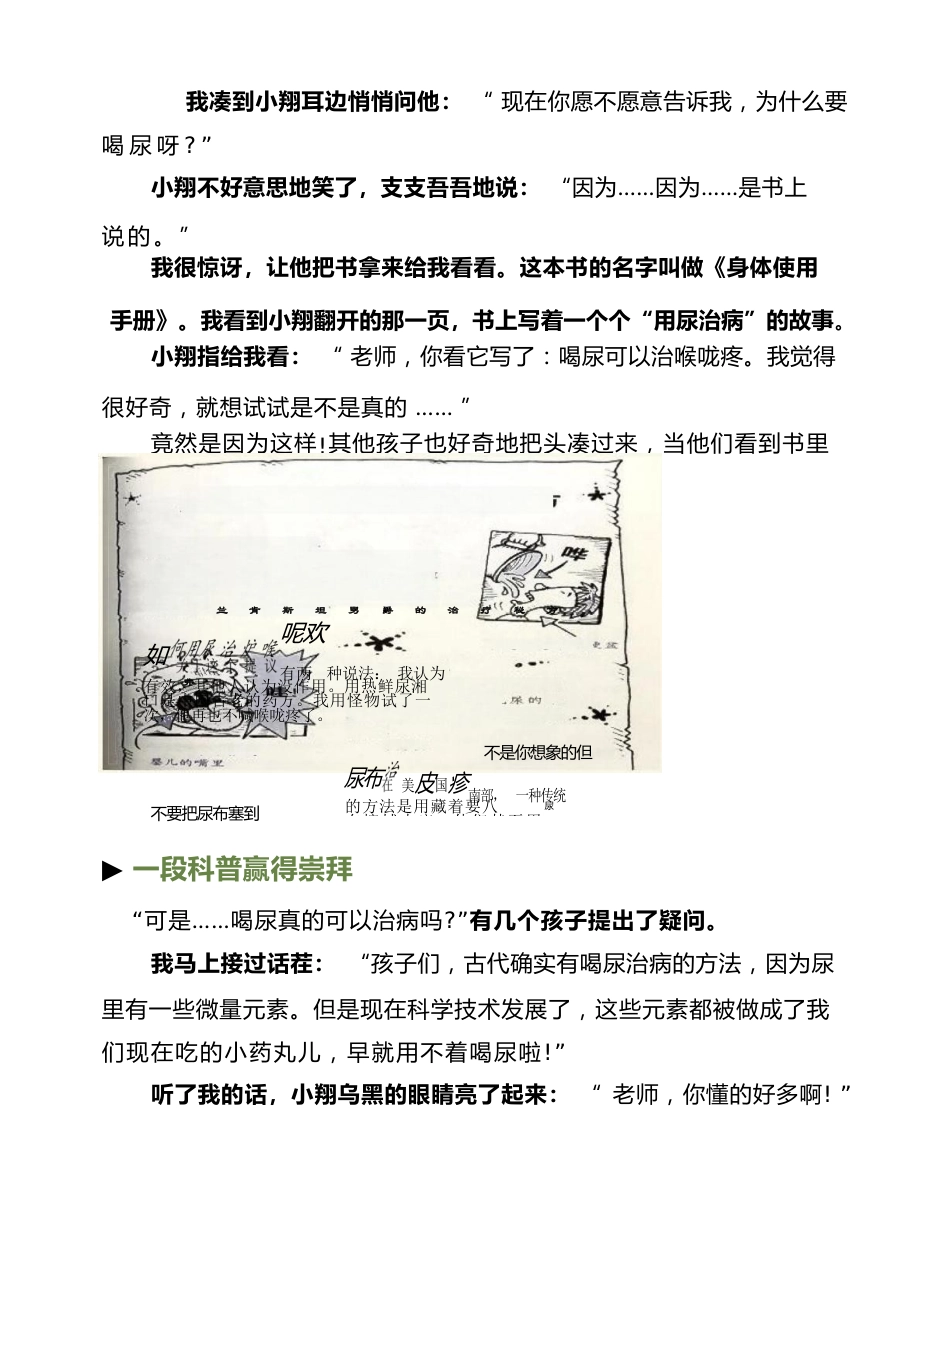 我凑到小翔耳边悄悄问他： “ 现在你愿不愿意告诉我，为什么要
喝尿呀?”
小翔不好意思地笑了，支支吾吾地说： “因为……因为……是书上
说的。”
我很惊讶，让他把书拿来给我看看。这本书的名字叫做《身体使用
手册》。我看到小翔翻开的那一页，书上写着一个个“用尿治病”的故事。
小翔指给我看： “ 老师，你看它写了：喝尿可以治喉咙疼。我觉得
很好奇，就想试试是不是真的 …… ”
竟然是因为这样!其他孩子也好奇地把头凑过来，当他们看到书里
哗
兰肯斯坦男爵的治疗秘方
呢欢
如何用尿治护喉
有两 种说法： 我认为
的药方。我用怪物试了一
尿的
不是你想象的但
婴儿的嘴里
尿布治
在 美皮国疹南部， 一种传统
不要把尿布塞到
的方法是用藏着要八
▶ 一段科普赢得崇拜
“可是……喝尿真的可以治病吗?”有几个孩子提出了疑问。
我马上接过话茬： “孩子们，古代确实有喝尿治病的方法，因为尿
里有一些微量元素。但是现在科学技术发展了，这些元素都被做成了我
们现在吃的小药丸儿，早就用不着喝尿啦!”
听了我的话，小翔乌黑的眼睛亮了起来： “ 老师，你懂的好多啊! ”